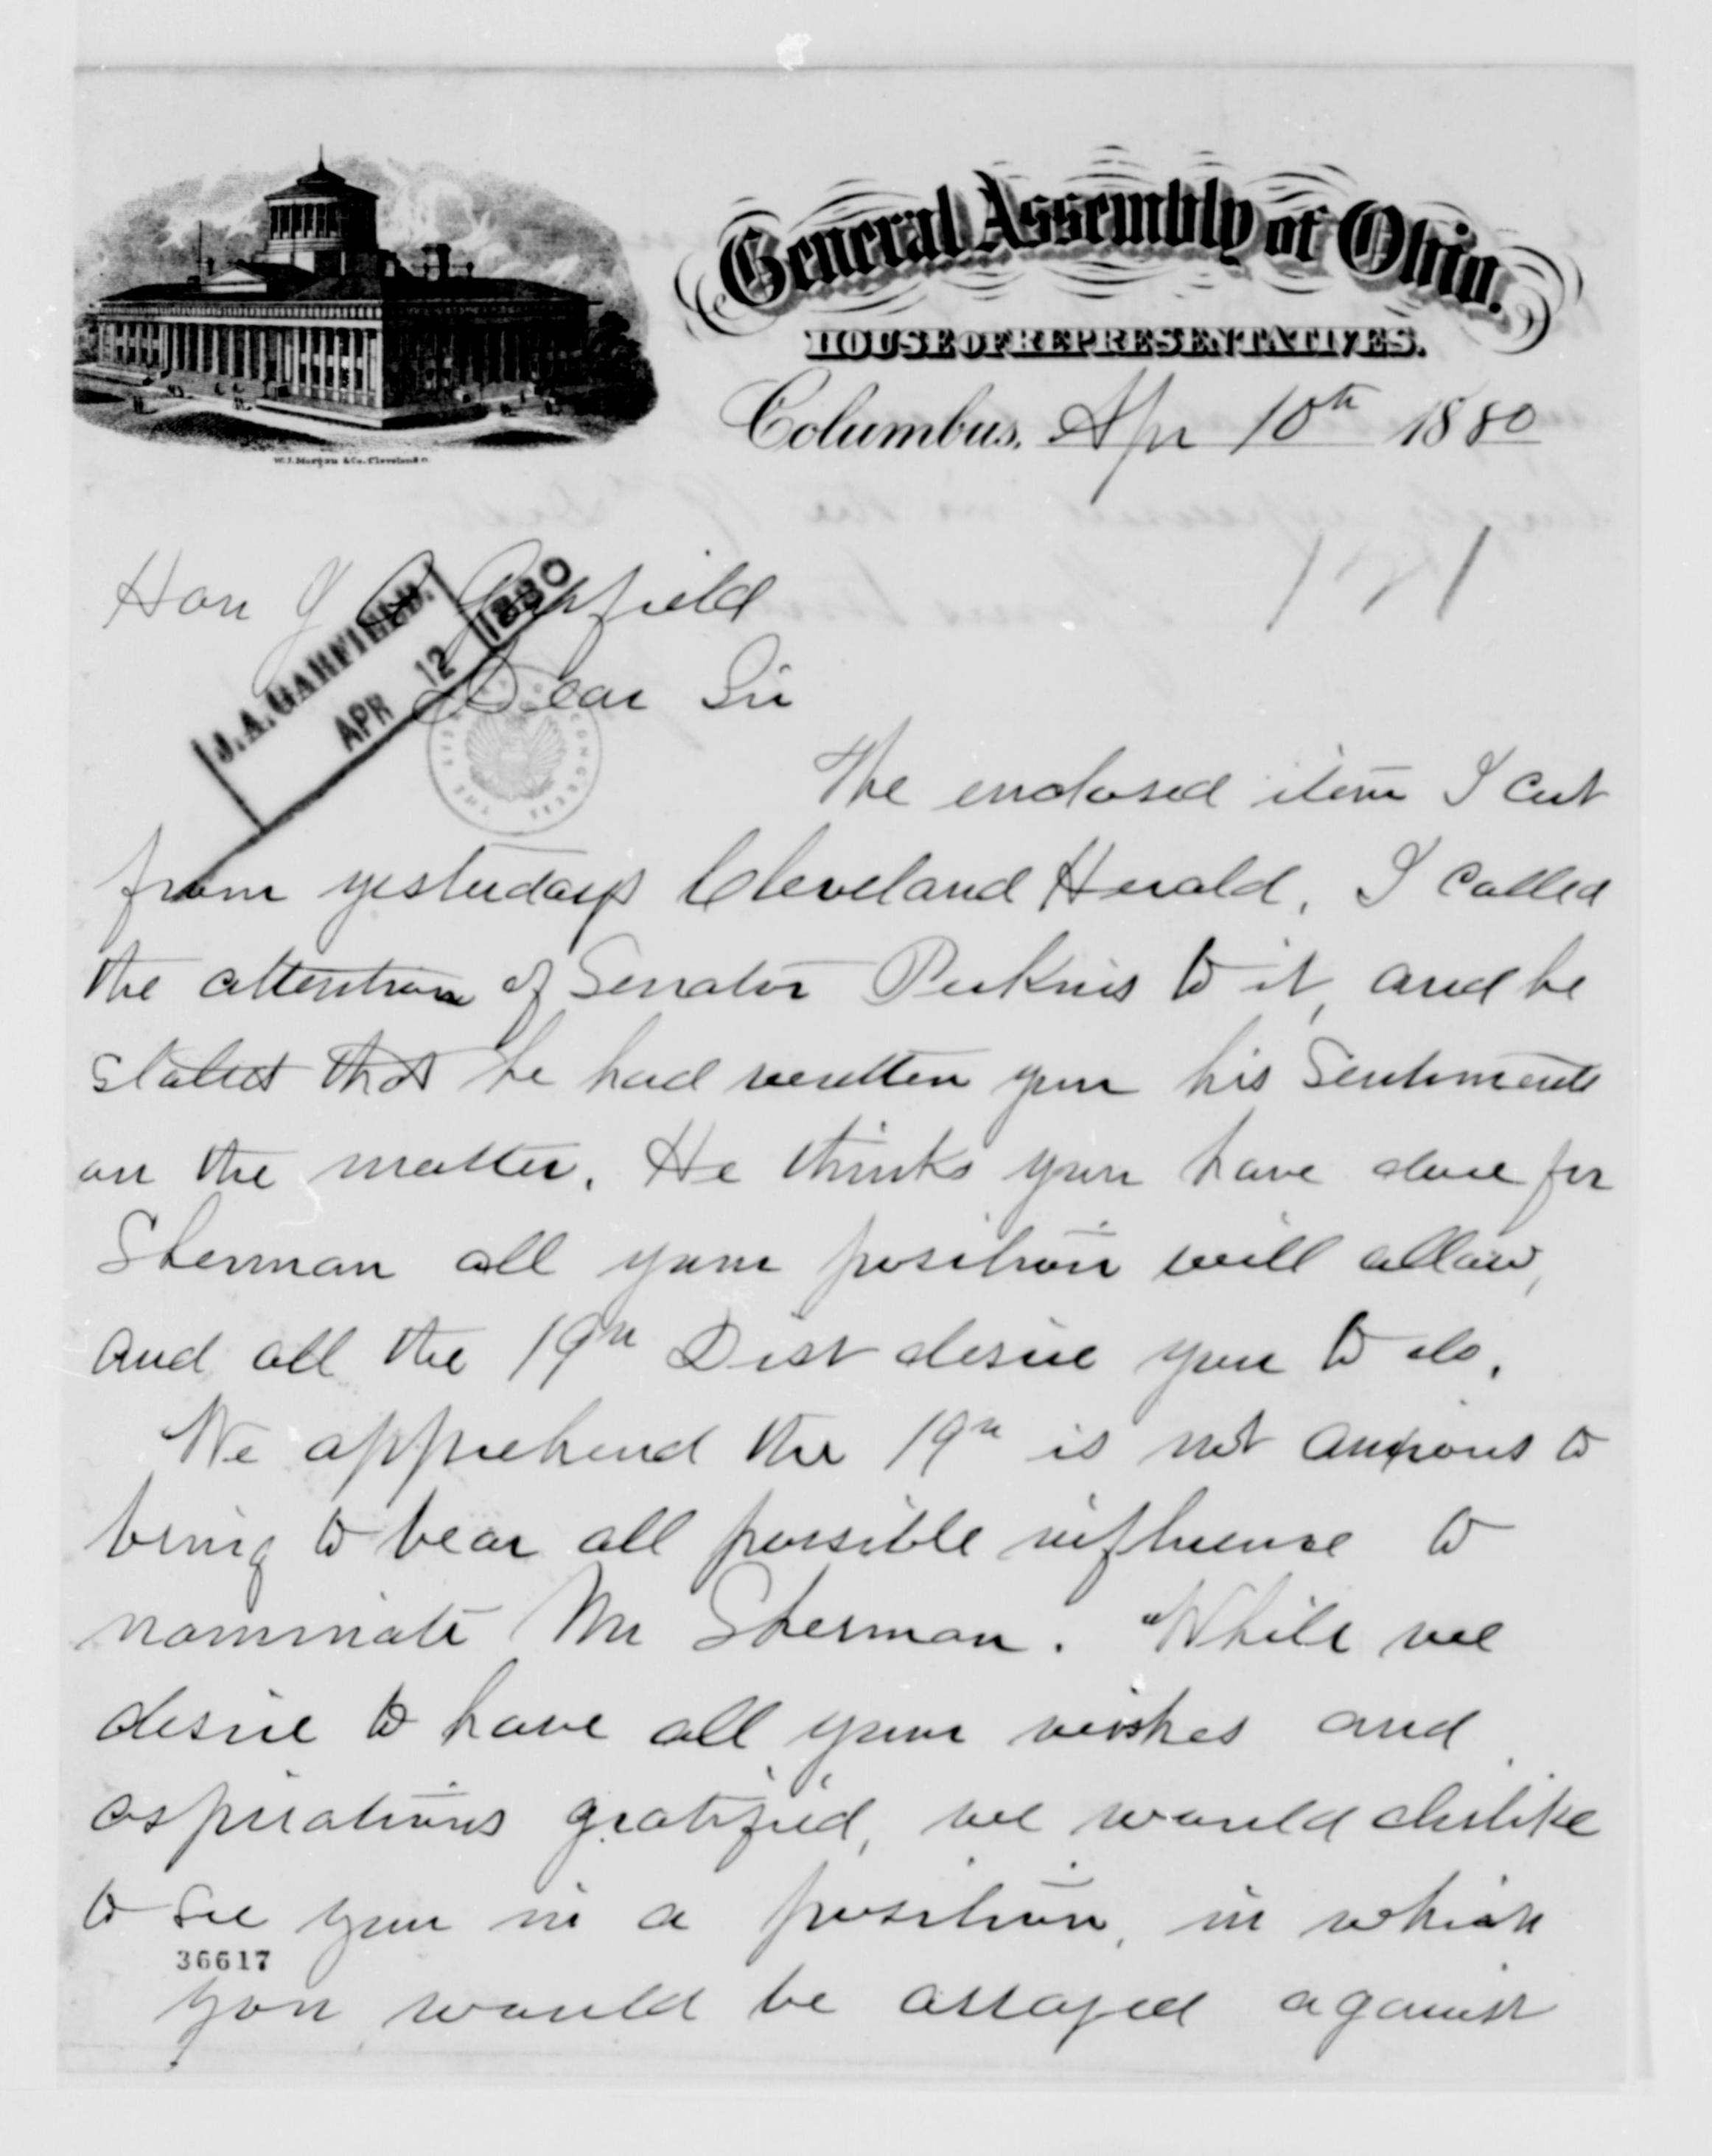 General Assembly of Ohio.
HOUSE OF REPRESENTATIVES.
Columbus, Apr 10th 1880
W.J. Morgan & Co. Cleveland O.
Hon J A Garfield
J. A. GARFIELD.
APR 12 1880
Dear Sir
The enclosed item I cut
from yesterdays Cleveland Herald, I called
the attention of Senator Perkins to it, and he
stated that he had written you his Sentiments
on the matter. He thinks you have done for
Sherman all your position will allow,
and all the 19th Dist desire you to do.
We apprehend the 19th is not anxious to
bring to bear all possible influence to
nominate Mr Sherman. While we
desire to have all your wishes and
aspirations gratified, we would dislike
to see you in a position, in which
36617
you would be arrayed against